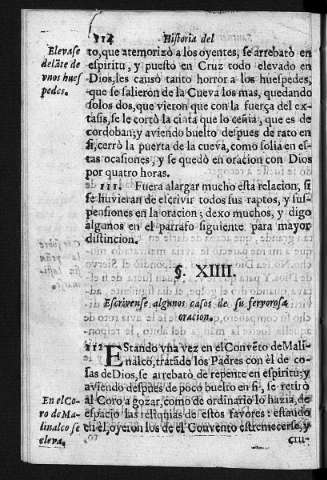 114 Historia del
Elevase
delãte de
vnos hues
pedes.
to, que atemorizò a los oyentes, se arrebatò en
espiritu, y puesto en Cruz todo elevado en
Dios, les causò tanto horror a los huespedes,
que se salieron de la Cueva los mas, quedando
solos dos, que vieron que con la fuerça del ex-
tasis, se le cortò la cinta que lo ceñia, que es de
cordoban; y aviendo buelto despues de rato en
si, cerrò la puerta de la cueva, como solia en es-
tas ocasiones, y se quedò en oracion con Dios
por quatro horas.
111. Fuera alargar mucho esta relacion, si
se huvieran de escrivir todos sus raptos, y sus-
pensiones en la oracion; dexo muchos, y digo
algunos en el parrafo siguiente para mayor
distincion.
§. XIIII.
Escrivense algunos casos de su fervorosa
oracion.
112 EStando vna vez en el Convẽto de Mali-
nalco, tratãdo los Padres con èl de co-
sas de Dios, se arrebatò de repente en espiritu; y
aviendo despues de poco buelto en si, se retirò
al Coro a gozar, como de ordinario lo hazia, de
espacio las reliquias de estos favores: estando
en èl, oyeron los de el Convento estremecerse, y
En el Co-
ro de Ma-
linalco se
eleva.